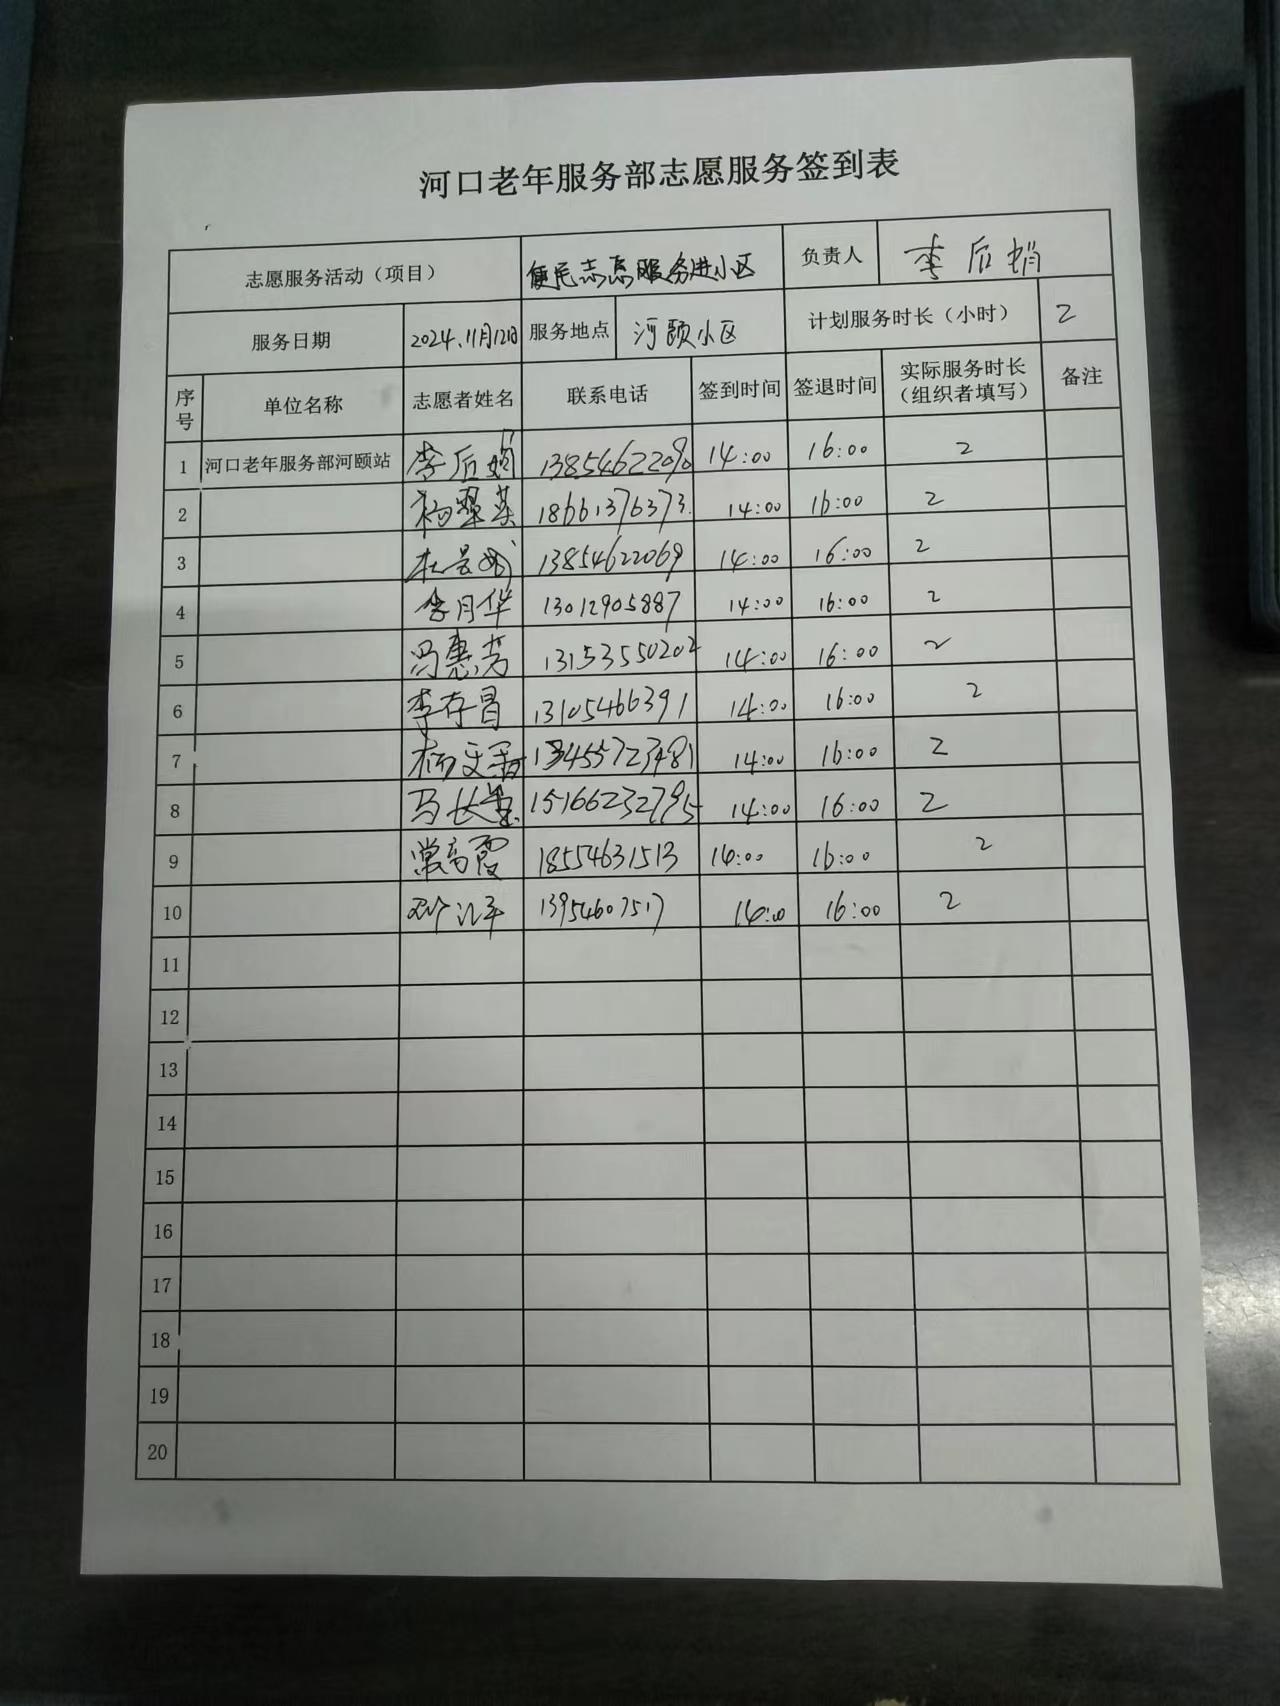 河口老年服务部志愿服务签到表
志愿服务活动（项目） 便民志愿服务进小区 负责人 李后娟
服务日期 2024.11月12日 服务地点 河颐小区 计划服务时长（小时） 2
序号 单位名称 志愿者姓名 联系电话 签到时间 签退时间 实际服务时长（组织者填写） 备注
1 河口老年服务部河颐站 李后娟 13854622090 14:00 16:00 2
2 18661376373 14:00 16:00 2
3 13854622069 14:00 16:00 2
4 李月华 13012905887 14:00 16:00 2
5 冯惠芳 13153550202 14:00 16:00 2
6 李存昌 13105466391 14:00 16:00 2
7 13455723481 14:00 16:00 2
8 15166232795 14:00 16:00 2
9 常高霞 18554631513 14:00 16:00 2
10 13954607517 14:00 16:00 2
11
12
13
14
15
16
17
18
19
20